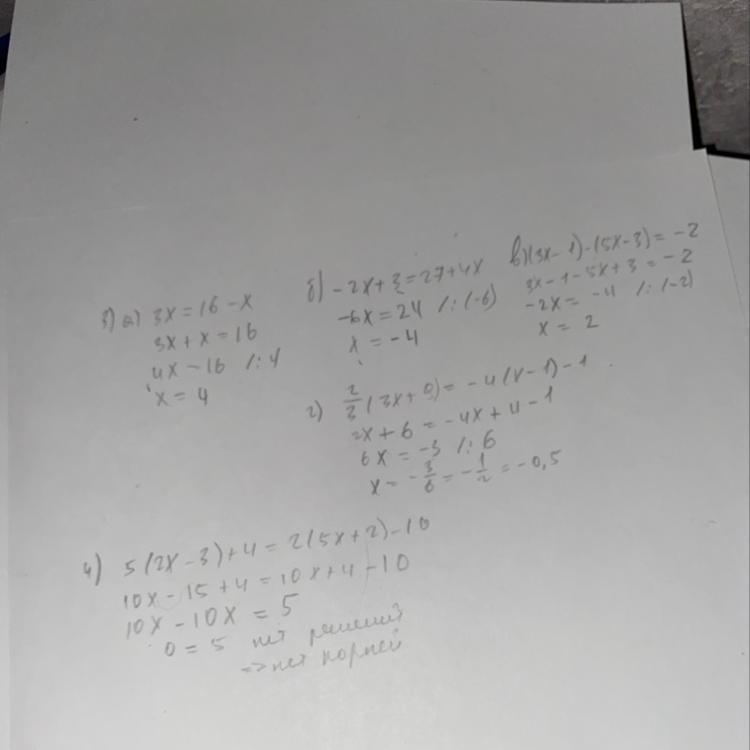 3) а) 3x = 16 - x
3x + x = 16
4x - 16 /: 4
x = 4
б) -2x + 3 = 27 + 4x
-6x = 24 /: (-6)
x = -4
в) (3x - 1) - (5x - 3) = -2
3x - 1 - 5x + 3 = -2
-2x = -4 /: (-2)
x = 2
г) 2/3 (3x + 9) = -4 (x - 1) - 1
2x + 6 = -4x + 4 - 1
6x = -3 /: 6
x = -3/6 = -1/2 = -0,5
4) 5 (2x - 3) + 4 = 2 (5x + 2) - 10
10x - 15 + 4 = 10x + 4 - 10
10x - 10x = 5
0 = 5 нет решений
=> нет корней